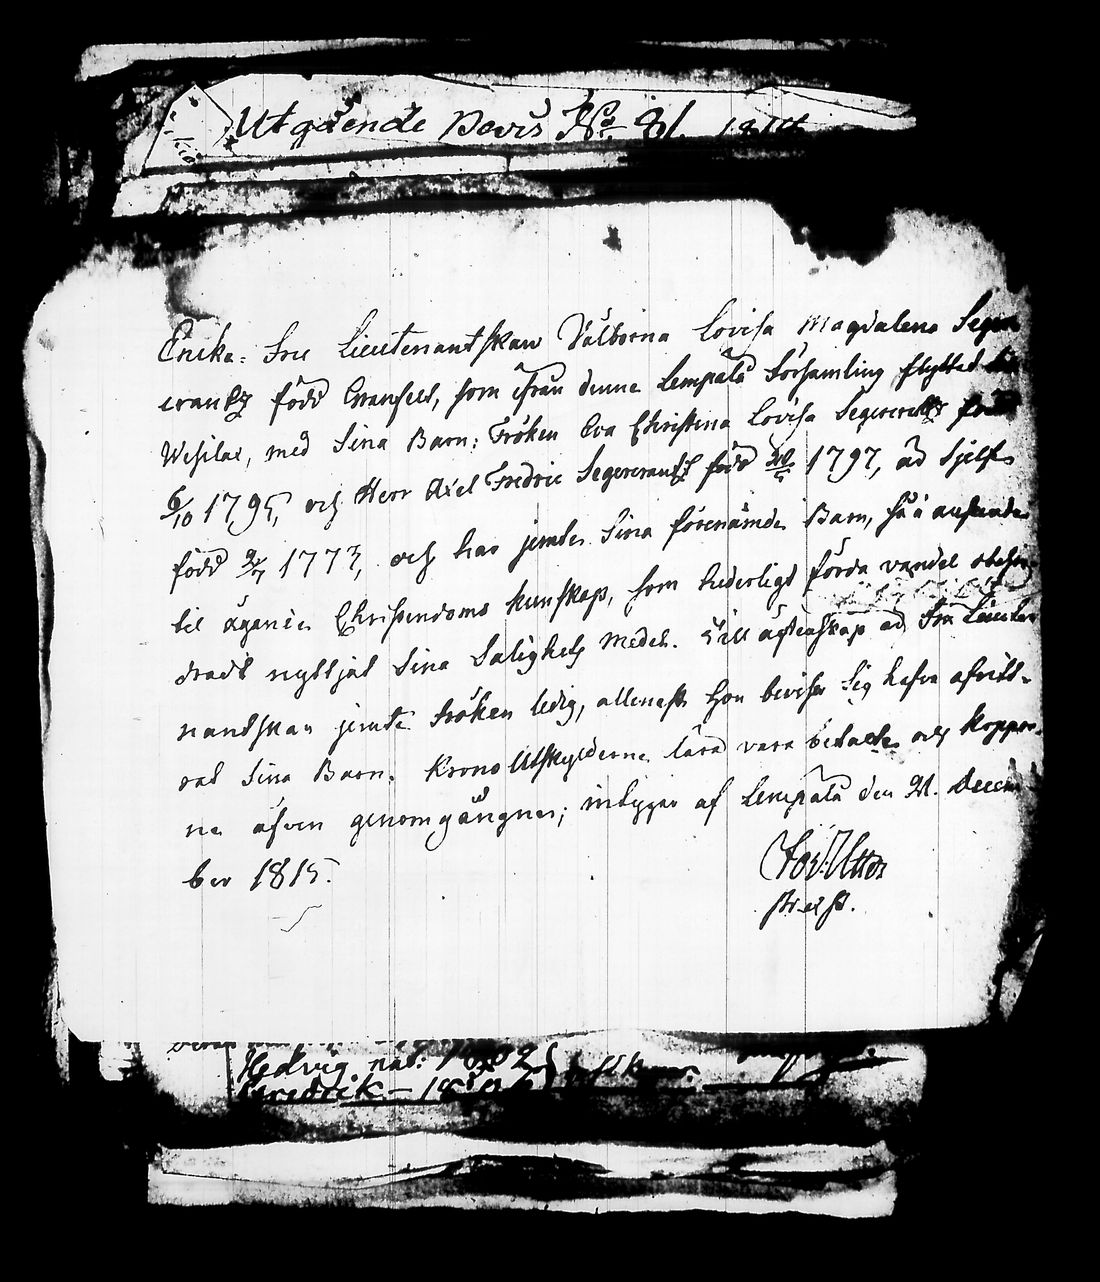 Utgående Bevis No 81. 1814
Enka: Fru Lieutenantskan Välborna Lovisa Magdalena Seger
crantz född Granfelt, som ifrån denne Lempälä Församling flyttad
Wesilax, med Sina Barn: Fröken Eva Christina Lovisa Segercrantz född
6/10 1795, och Herr Axel Fredric Segercrantz född 1797, är Sjelf
född 2/7 1773, och har jemte Sina förenämde Barn, så i anseende
til ägande Christendoms kunskap, som hederligt förda vandel obehin-
dradt nyttjat Sina Salighets Medel. Till ägtenskap är Fru Lieute
nantskan jemte Fröken ledig, allenast hon bevisar Sig hafva afvitt-
rat Sina Barn. Krono Utskylderne lära vara betalte och Koppor-
ne äfven genomgångne; intygar af Lempälä den 21. Decem
ber 1815.
Hedvig nat: 1802
Fredrik – 18